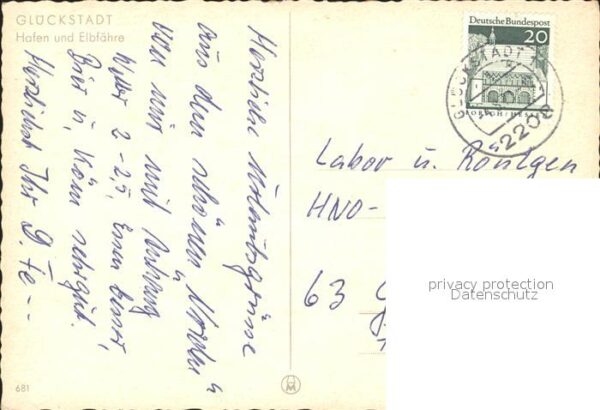 GLÜCKSTADT
Hafen und Elbfähre
Herzliche Urlaubsgrüsse
aus dem schönen "Norden"
von mir mit Anhang
Wetter 2-2,5, Essen
Bier u. Köm sehr gut.
Herzlichst Ihr D. Fe--
681
Deutsche Bundespost
20
LORSCH/HESSEN
GLÜCKSTADT
2208
Labor u. Röntgen
HNO-
63
privacy protection
Datenschutz